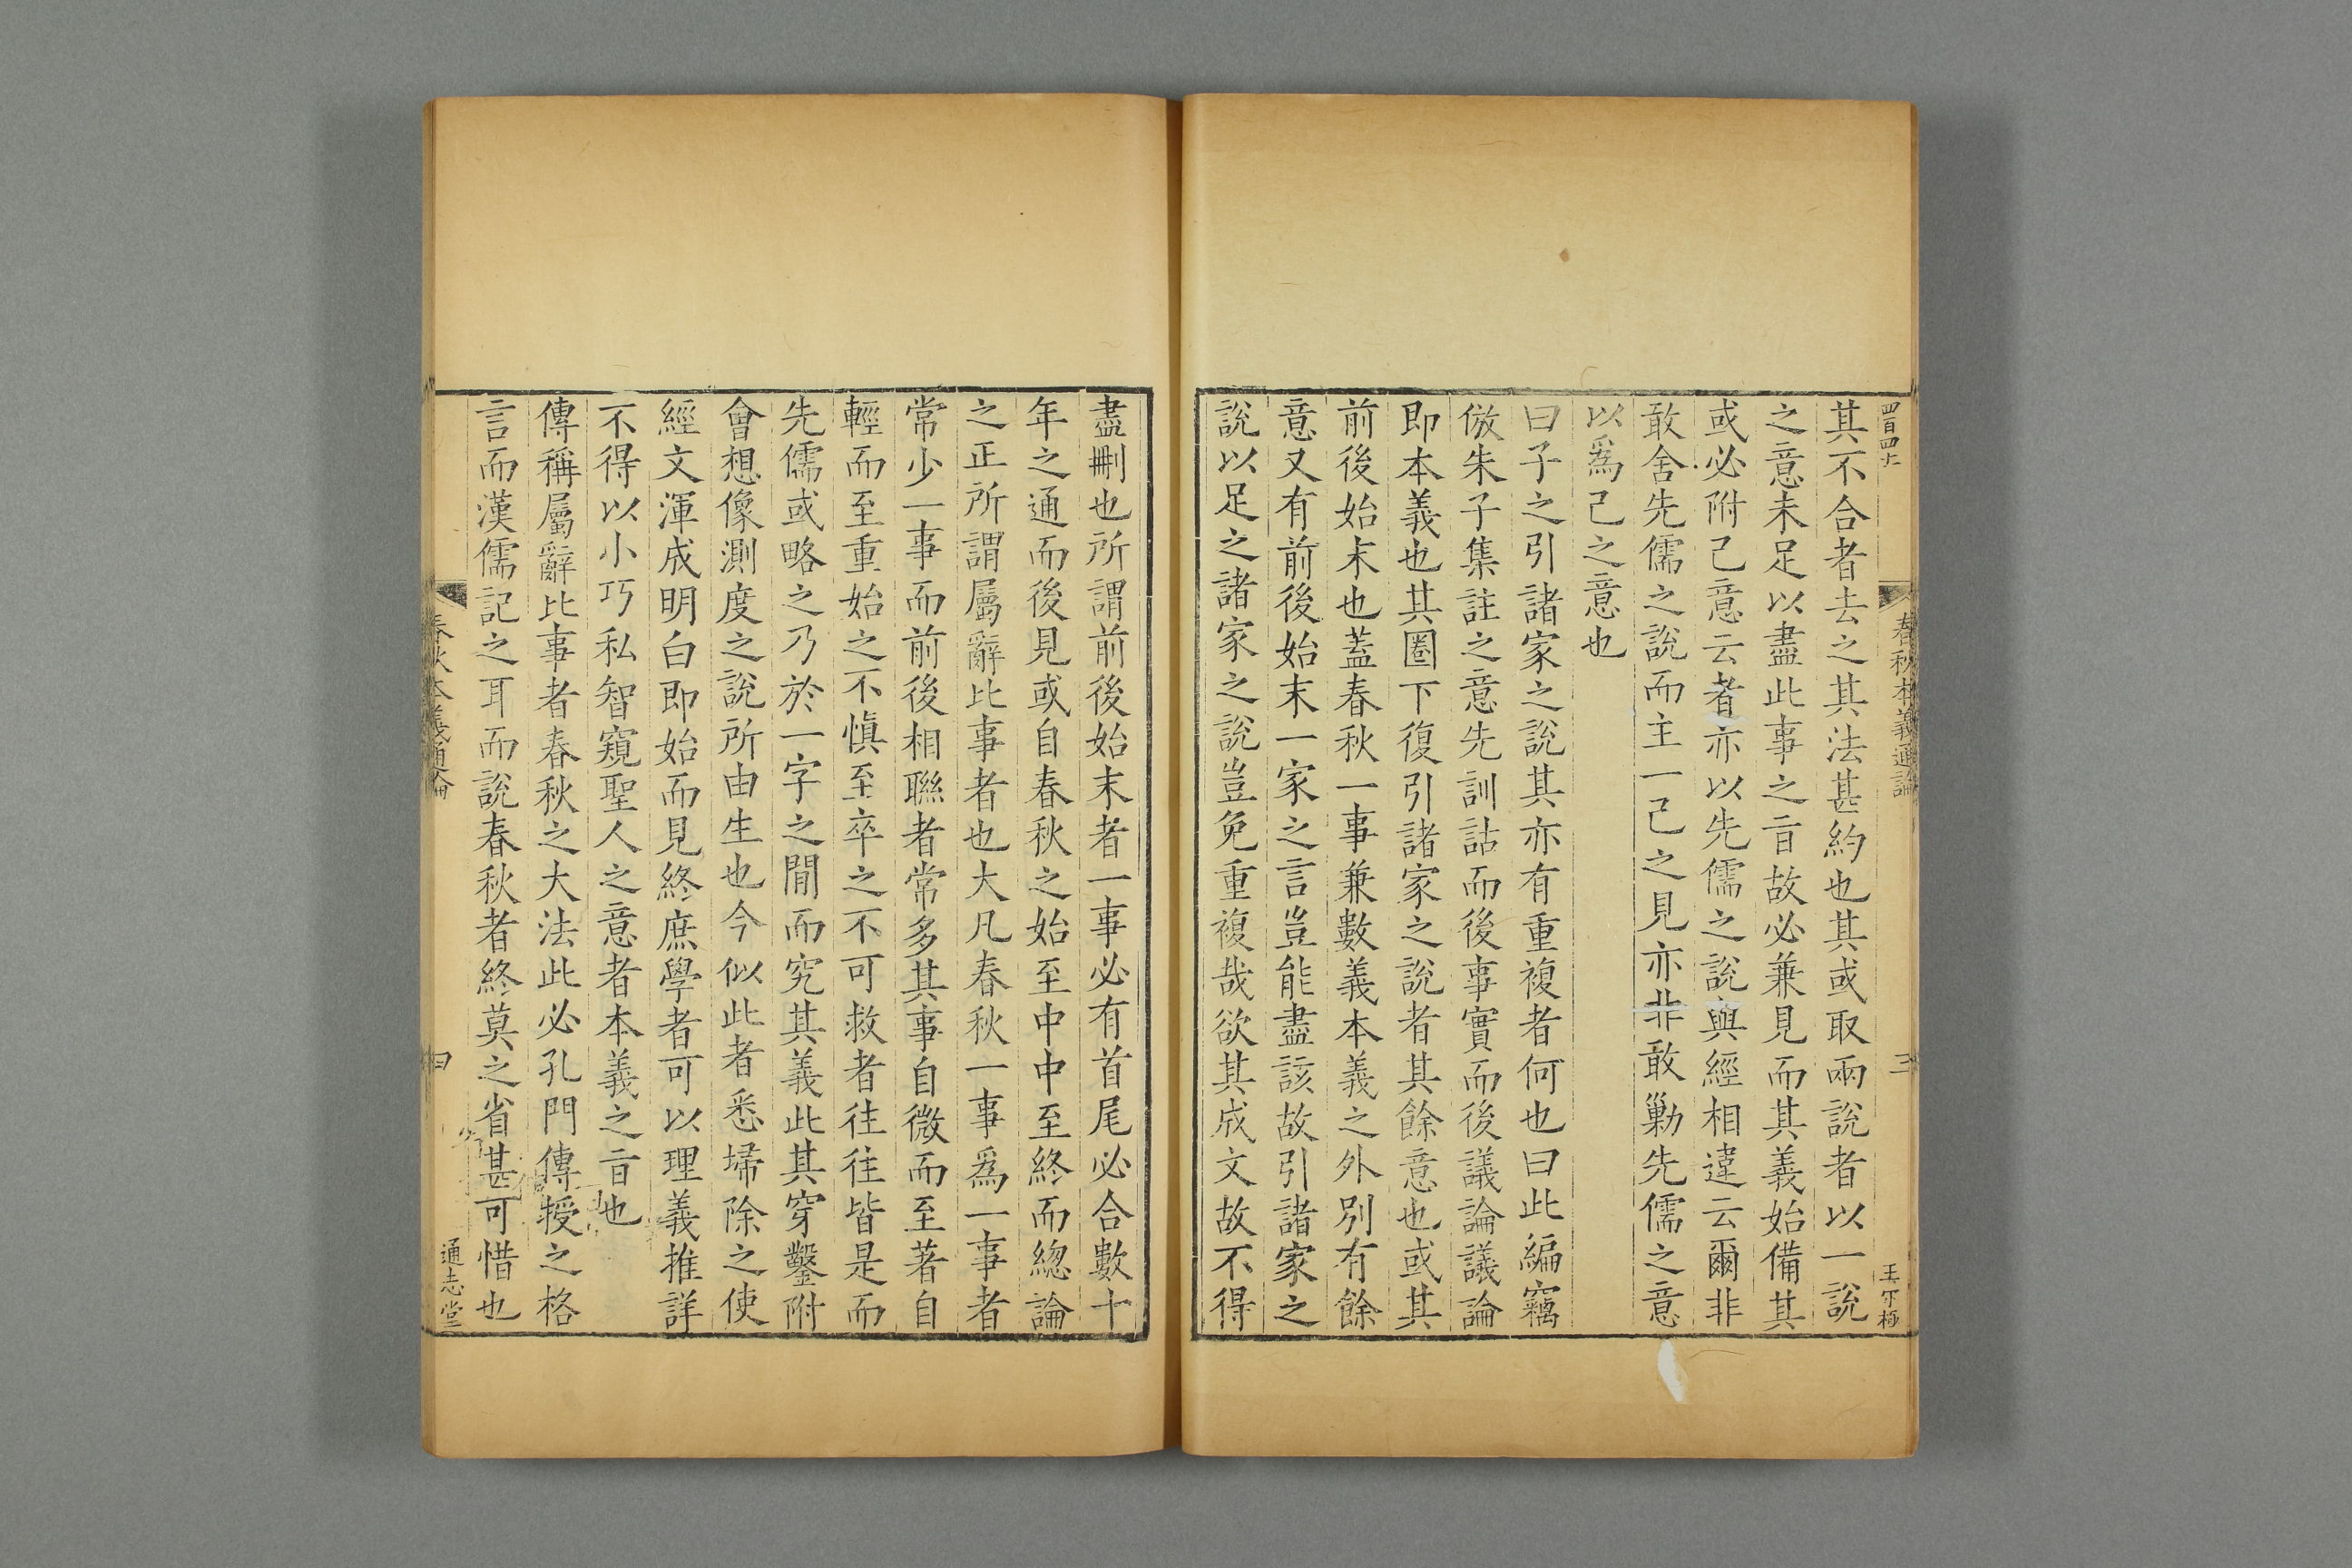 春秋本義通論
三
其不合者去之其法甚約也其或取兩說者以一說
之意未足以盡此事之旨故必兼見而其義始備其
或必附己意云者亦以先儒之說與經相違云爾非
敢舍先儒之說而主一己之見亦非敢勦先儒之意
以爲己之意也
曰子之引諸家之說其亦有重複者何也曰此編竊
倣朱子集註之意先訓詁而後事實而後議論議論
即本義也其圈下復引諸家之說者其餘意也或其
前後始末也蓋春秋一事兼數義本義之外別有餘
意又有前後始末一家之言豈能盡該故引諸家之
說以足之諸家之說豈免重複哉欲其成文故不得
盡刪也所謂前後始末者一事必有首尾必合數十
年之通而後見或自春秋之始至中中至終而總論
之正所謂屬辭比事者也大凡春秋一事爲一事者
常少一事而前後相聯者常多其事自微而至著自
輕而至重始之不慎至卒之不可救者往往皆是而
先儒或略之乃於一字之間而究其義此其穿鑿附
會想像測度之說所由生也今似此者悉埽除之使
經文渾成明白即始而見終庶學者可以理義推詳
不得以小巧私智窺聖人之意者本義之旨也
傳稱屬辭比事者春秋之大法此必孔門傳授之格
言而漢儒記之耳而說春秋者終莫之省甚可惜也
春秋本義通論
四
通志堂